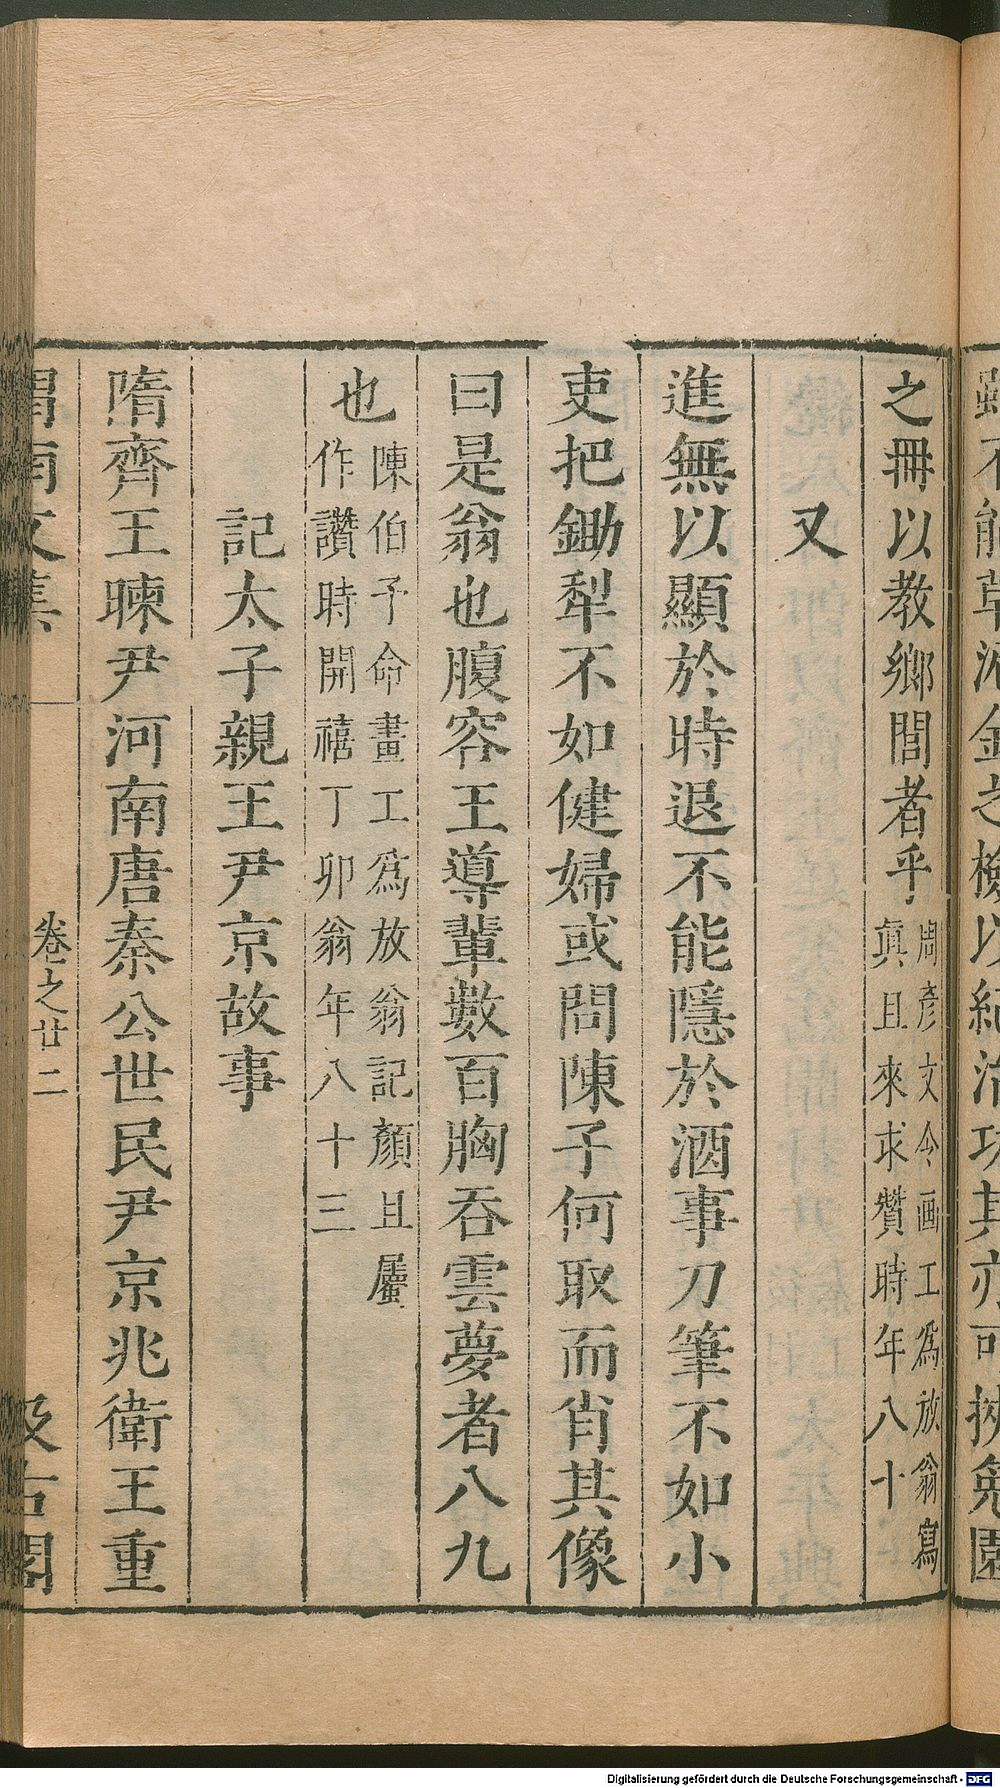 之冊以教鄉閭者乎周彥文令画工爲放翁寫
眞且來求贊時年八十
又
進無以顯於時退不能隱於酒事刀筆不如小
吏把鋤犁不如健婦或問陳子何取而肖其像
曰是翁也腹容王導輩數百胸吞雲夢者八九
也陳伯予命畫工爲放翁記顏且屬
作讚時開禧丁卯翁年八十三
記太子親王尹京故事
隋齊王暕尹河南唐秦公世民尹京兆衛王重
渭南文集
卷之廿二
汲古閣
Digitalisierung gefördert durch die Deutsche Forschungsgemeinschaft - DFG